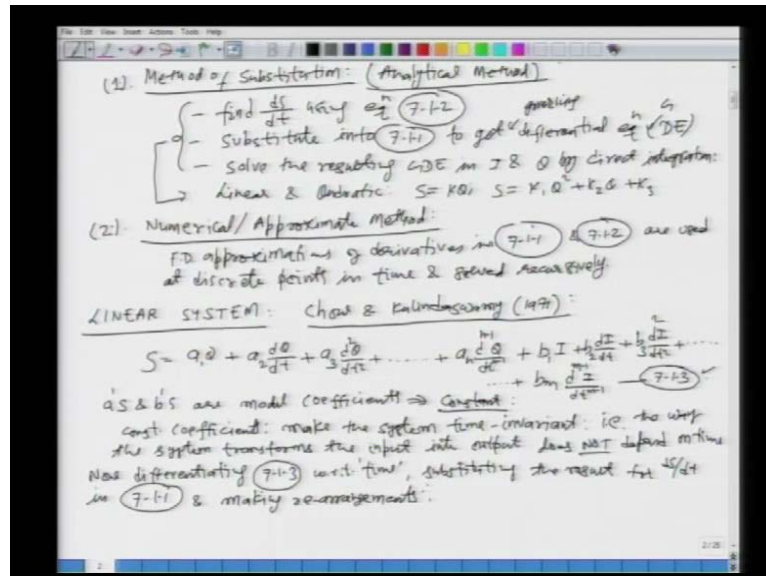 File Edit View Insert Actions Tools Help
(1). Method of Substitution: (Analytical Method)
- find dS/dt using eqn 7-1-2
governing
- Substitute into 7-1-1 to get differential eqn (DE)
- Solve the resulting GDE in I & Q by direct integration:
Linear & Quadratic: S = KQ; S = K₁Q² + K₂Q + K₃
(2). Numerical/Approximate Method:
F.D. approximations of derivatives in 7-1-1 & 7-1-2 are used
at discrete points in time & solved recursively.
LINEAR SYSTEM: Chow & Kulandaiswamy (1971):
S = a₁Q + a₂ dQ/dt + a₃ d²Q/dt² + ...... + aₙ dⁿ⁻¹Q/dtⁿ⁻¹ + b₁I + b₂ dI/dt + b₃ d²I/dt² + ......
... + bₘ dᵐ⁻¹I/dtᵐ⁻¹ — 7-1-3
a's & b's are model coefficients ⇒ Constant:
const. coefficient: make the system time-invariant: i.e. the way
the system transforms the input into output does NOT depend on time
Now differentiating 7-1-3 w.r.t. 'time', substituting the result for dS/dt
in 7-1-1 & making re-arrangements:
2/26
2